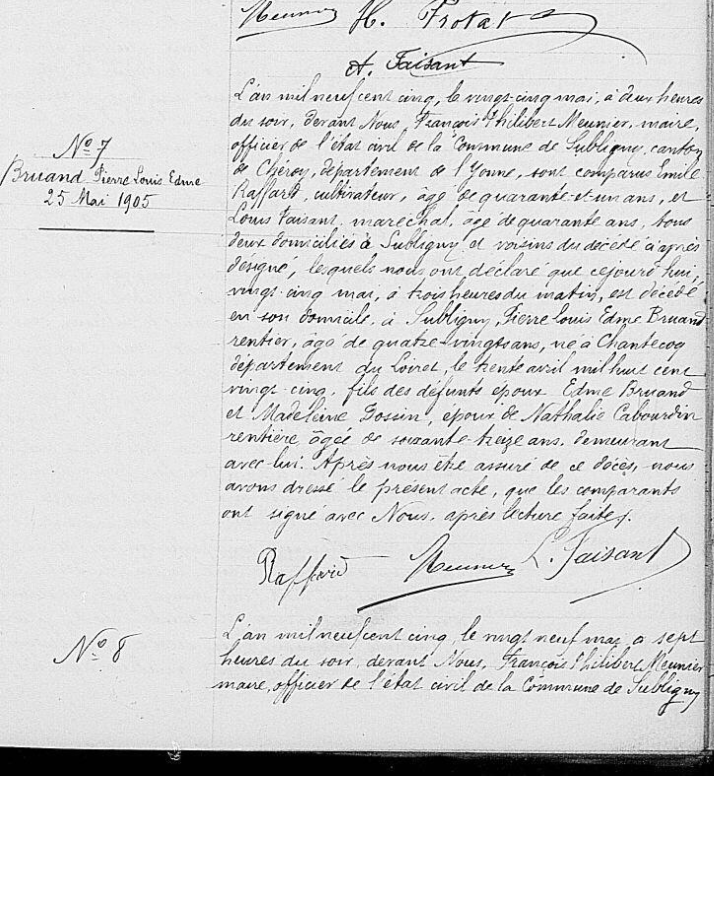 Meunier H. Protat
A. Faisant
L'an mil neuf cent cinq, le vingt-cinq mai, à deux heures
du soir, devant Nous, François Philibert Meunier, maire,
officier de l'état civil de la Commune de Subligny, canton
de Chéroy, département de l'Yonne, sont comparus Emile
Raffard, cultivateur, âgé de quarante-et-un ans, et
Louis Faisant, maréchal, âgé de quarante ans, tous
deux domiciliés à Subligny et voisins du décédé ci-après
désigné, lesquels nous ont déclaré que cejourd'hui,
vingt-cinq mai, à trois heures du matin, est décédé
en son domicile, à Subligny, Pierre Louis Edme Bruand
rentier, âgé de quatre-vingts ans, né à Chantecoq
département du Loiret, le trente avril mil huit cent
vingt-cinq, fils des défunts époux Edme Bruand
et Madeleine Gossin, époux de Nathalie Cabourdin
rentière âgée de soixante-treize ans, demeurant
avec lui. Après nous être assuré de ce décès, nous
avons dressé le présent acte, que les comparants
ont signé avec Nous, après lecture faite.
Raffard Meunier L. Faisant
N° 7
Bruand Pierre Louis Edme
25 Mai 1905
N° 8
L'an mil neuf cent cinq, le vingt neuf mai, à sept
heures du soir, devant Nous, François Philibert Meunier
maire, officier de l'état civil de la Commune de Subligny